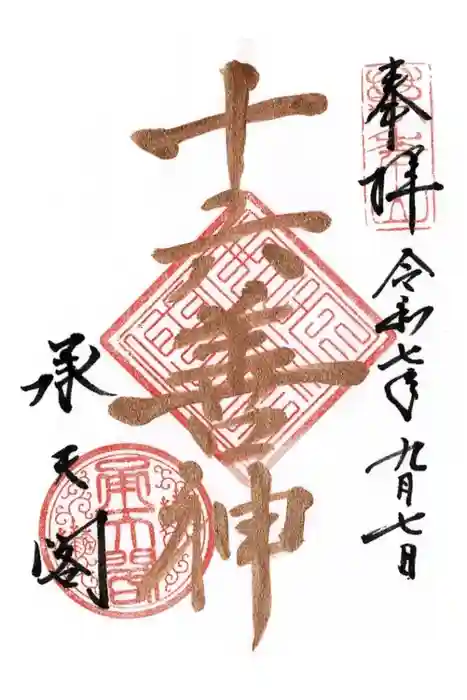 奉拝
令和七年 九月七日
十六善神
承天閣
承天閣